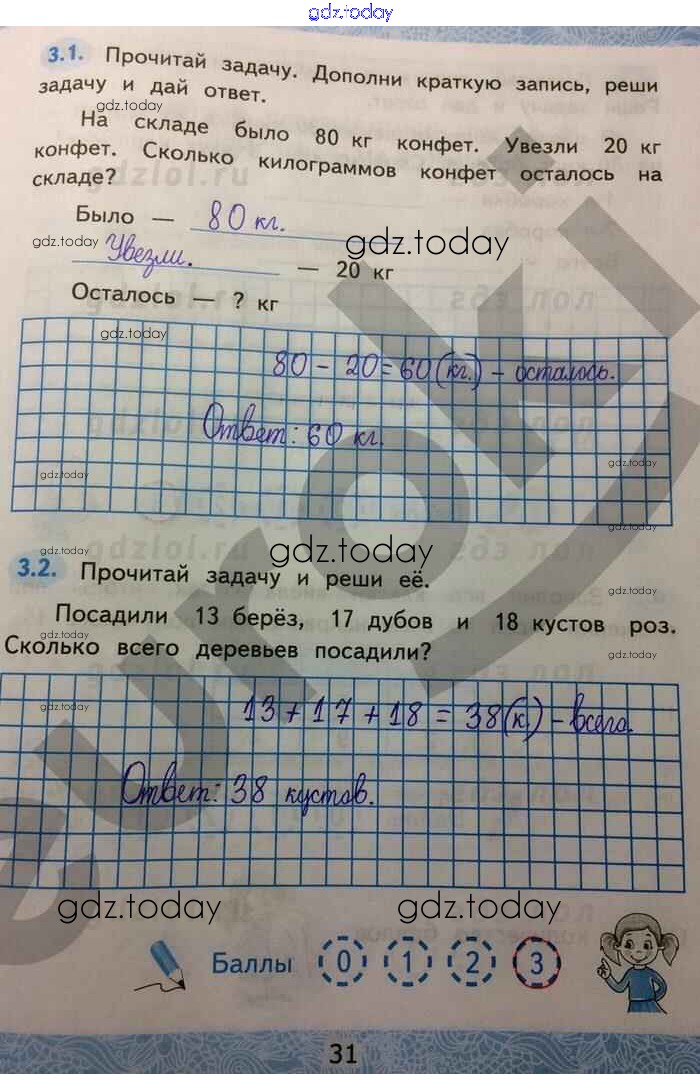 gdz.today
3.1. Прочитай задачу. Дополни краткую запись, реши
задачу и дай ответ.
gdz.today
На складе было 80 кг конфет. Увезли 20 кг
конфет. Сколько килограммов конфет осталось на
складе?
gdz.today
gdz.today
Было — 80 кг.
gdz.today
gdz.today
Увезли. — 20 кг
Осталось — ? кг
gdz.today
80 - 20 = 60 (кг.) - осталось.
Ответ: 60 кг.
gdz.today
gdz.today
gdz.today
gdz.today
3.2. Прочитай задачу и реши её.
gdz.today
Посадили 13 берёз, 17 дубов и 18 кустов роз.
gdz.today
Сколько всего деревьев посадили?
gdz.today
13 + 17 + 18 = 38 (к.) - всего.
Ответ: 38 кустов.
gdz.today
gdz.today
Баллы 0 1 2 3
31